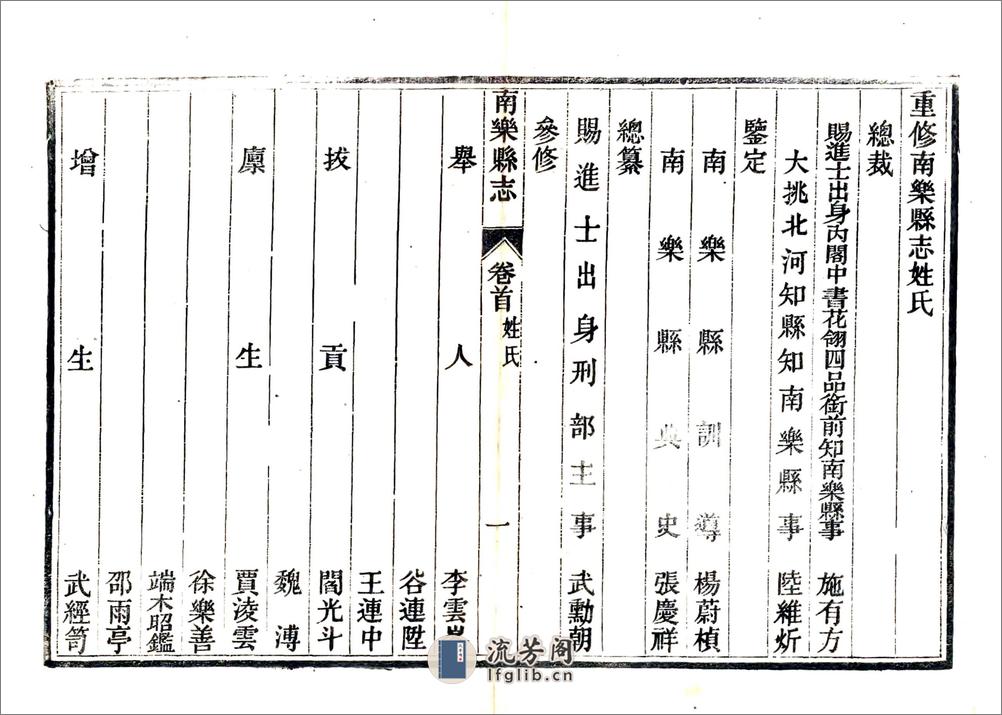 重修南樂縣志姓氏
總裁
賜進士出身內閣中書花翎四品銜前知南樂縣事 施有方
大挑北河知縣知南樂縣事 陸維炘
鑒定
南樂縣訓導 楊蔚楨
南樂縣典史 張慶祥
總纂
賜進士出身刑部主事 武勳朝
參修
南樂縣志 卷首 姓氏 一
舉人 李雲
谷連陞
王連中
拔貢 閻光斗
魏溥
廩生 賈淩雲
徐樂善
端木昭鑑
邵雨亭
增生 武經笥
流芳阁
lfglib.cn